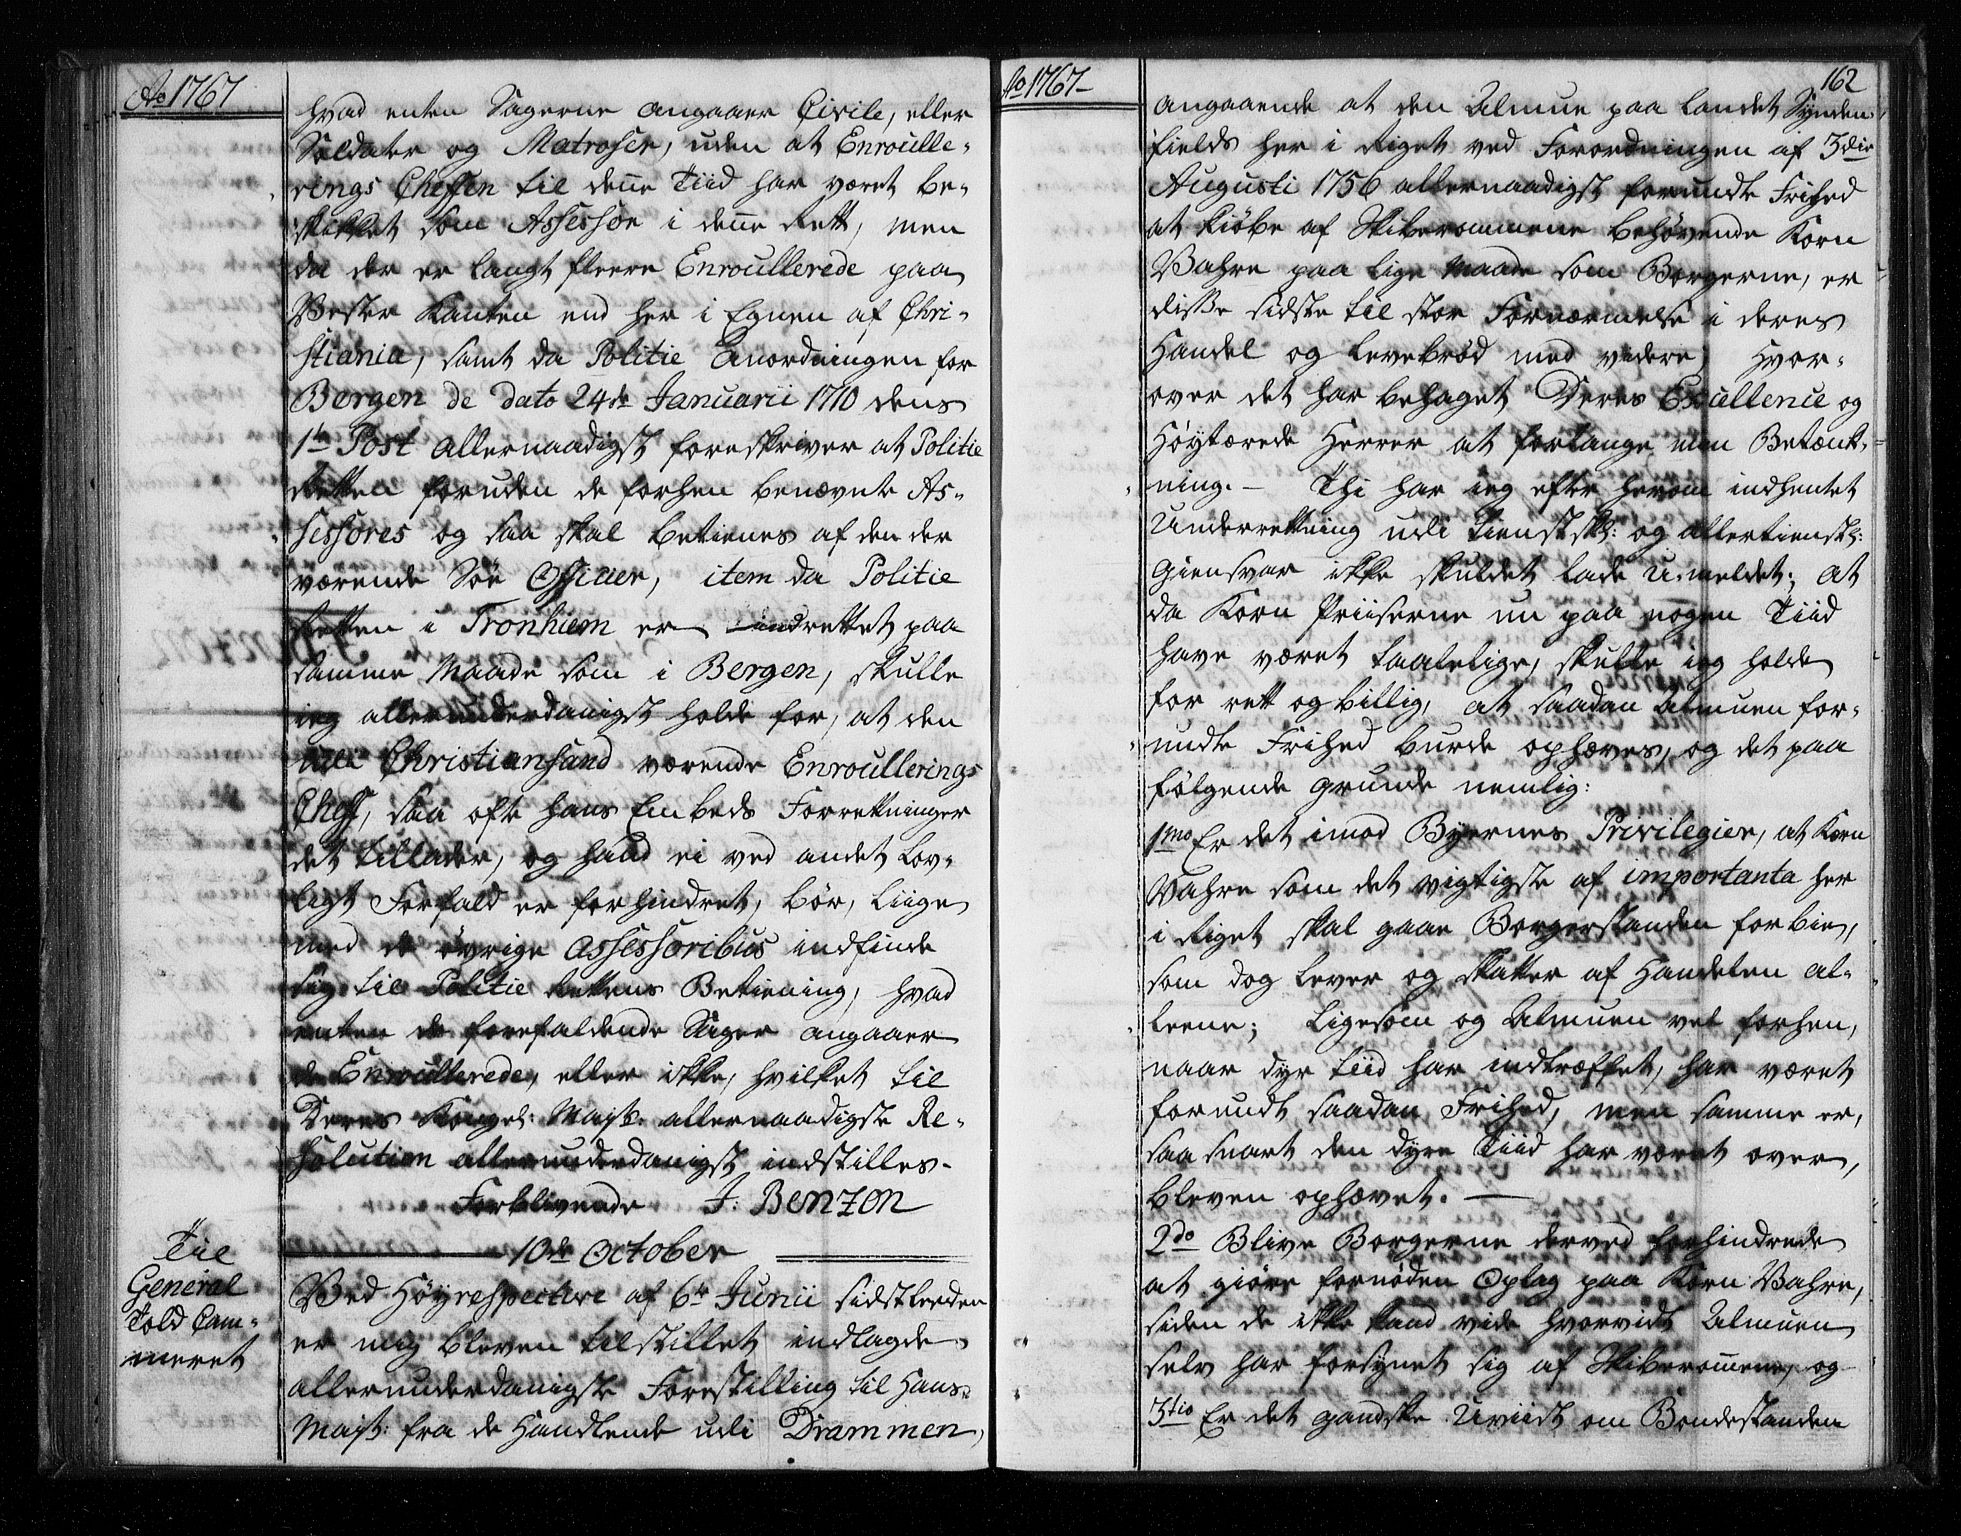 Ao 1767
hvad enten Sagerne angaaer Civile, eller
Soldater og Matroser, uden at Enroulle-
rings Cheffen til deñe Tiid har været be-
skikket som Assessor i deñe Rett, men
da der er langt fleere Enroullerede paa
Vester Kanten end her i Egnen af Chri-
stiania, samt da Politie Anordningen for
Bergen de dato 24de Januarii 1710 dens
1te Post allernaadigst foreskriver at Politie
Retten foruden de forhen benævnte As-
sessores og saa skal betienes af den der
værende Söe Officier, item da Politie
Retten i Tronhiem er indrettet paa
samme Maade som i Bergen, skulle
ieg allerunderdanigst holde for, at den
udi Christiansand værende Enroullerings
Cheff, saa ofte hans Embeds Forretninger
det tillader, og hand ei ved andet Lov-
ligt Forfald er forhindret, bör, liige
med de övrige Assessoribus indfinde
sig til Politie Rettens Betiening, hvad
enten de forefaldende Sager angaaer
de Enroullerede, eller ikke, hvilket til
Deres Kongel: Majts: allernaadigste Re-
solution allerunderdanigst indstilles.
Forblivende J. Benzon
10de October
Til
General
Told Cam-
meret
Ved Höyrespective af 6te Junii sidstleeden
er mig bleven tilstillet indlagde
allerunderdanigste Forestilling til Hans
Majts: fra de Handlende udi Drammen,
Ao 1767
162
angaaende at den Almue paa Landet Synden-
fields her i Riget ved Forordningen af 3die
Augusti 1756 allernaadigst forundte Frihed
at kiöbe af Skiberommene behövende Korn
Vahre paa lige Maade som Borgerne, er
disse sidste til stor Fornærmelse i deres
Handel og Levebröd med videre, hvor-
over det har behaget Deres Excellence og
Höytærede Herrer at forlange min Betænk-
ning. - Thi har ieg efter herom indhentet
Underretning udi tienstsk: og allertienstsk:
Giensvar ikke skuldet lade U-meldet; at
da Korn Priiserne nu paa nogen Tiid
have været taalelige, skulle ieg holde
for rett og billig, at saadan Almuen for-
undte Frihed burde ophæves, og det paa
fölgende Grunde nemlig:
1mo Er det imod Byernes Privilegier, at Korn
Vahre som det vigtigste af importanta her
i Riget skal gaae Borgerstanden forbie,
som dog lever og skatter af Handelen al-
leene; Ligesom og Almuen vel forhen,
naar dyr Tiid har indtræffet, har været
forundt saadan Frihed, men samme er,
saa snart den dyre Tiid har været over,
bleven ophævet. -
2do Blive Borgerne derved forhindrede
at giöre fornöden Oplag paa Korn Vahre,
siden de ikke kand vide hvorvidt Almuen
selv har forsynet sig af Skiberom̃ene, og
3tio Er det gandske Uviist om Bondestanden